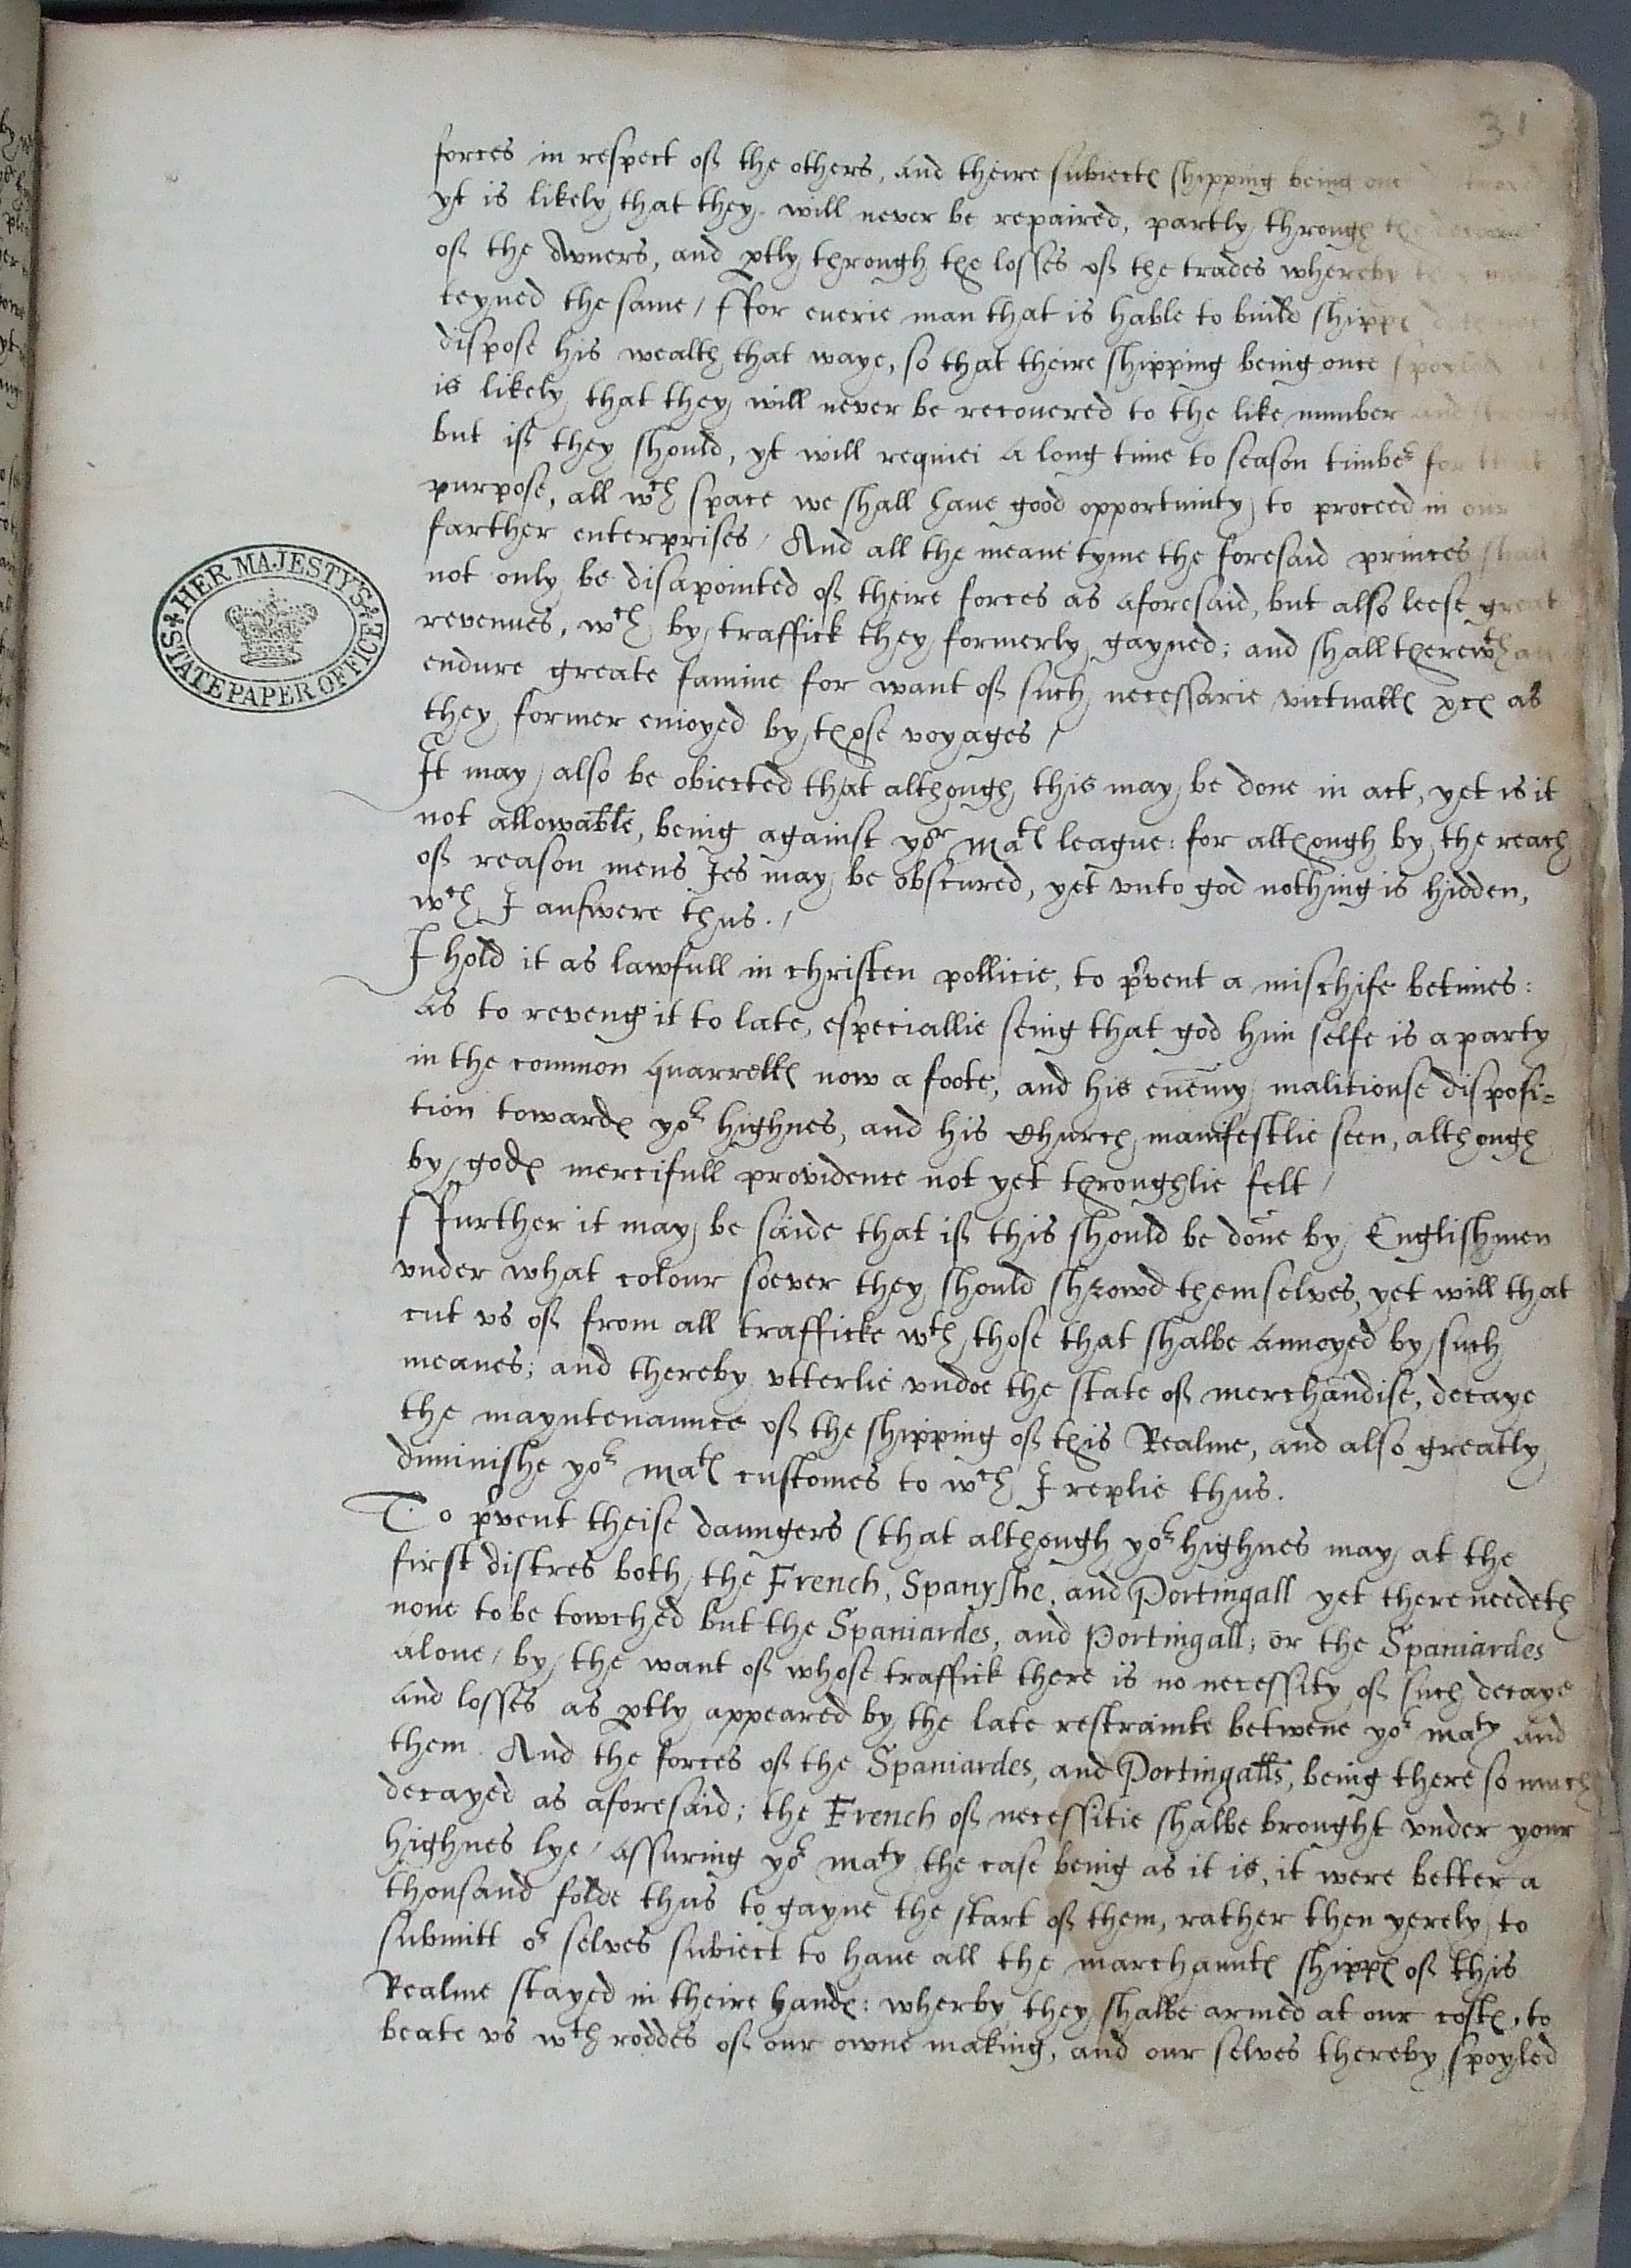 31
forces in respect of the others, and theire subiectes shipping being once
yt is likely that they will never be repaired, partly through the
of the Awners, and ptly through the losses of the trades whereby
teyned the same / ffor euerie man that is hable to build shippes doth not
dispose his wealth that waye, so that theire shipping being once spoyled
is likely that they will never be recouered to the like number and
but if they should, yt will requiei a long time to season timber for that
purpose, all wch space we shall haue good opportunity to proceed in our
farther enterprises / And all the meane tyme the foresaid princes shall
not only be disapointed of theire forces as aforesaid, but also leese great
revenues, wch by traffick they formerly gayned; and shall therewth
endure greate famine for want of such necessarie victualls &ces as
they former enioyed by those voyages /
It may also be obiected that although this may be done in act, yet is it
not allowable, being against yor Mats league: for although by the reach
of reason mens Ies may be obscured, yet vnto god nothing is hidden,
wch I answere thus. /
I hold it as lawfull in christen pollicie, to pvent a mischife betimes:
as to reveng it to late, especiallie seing that god him selfe is a party
in the common quarrells now a foote, and his enemy malitiouse disposi=
tion towardes yor highnes, and his Church manifestlie seen, although
by godes mercifull providence not yet throughlie felt /
ffurther it may be saide that if this should be done by Englishmen
vnder what colour soever they should shrowd themselves, yet will that
cut vs of from all trafficke wth those that shalbe annoyed by such
meanes; and thereby vtterlie vndoe the state of merchandise, decaye
the mayntenaunce of the shipping of this Realme, and also greatly
diminishe yor Mats customes to wch I replie thus.
To pvent theise daungers (that although yor highnes may at the
first distres both the French, Spanyshe, and Portingall yet there needeth
none to be towched but the Spaniardes, and Portingall; or the Spaniardes
alone / by the want of whose traffick there is no necessity of such decaye
and losses as ptly appeared by the late restrainte betwene yor Maty and
them. And the forces of the Spaniardes, and Portingalls, being there so much
decayed as aforesaid; the French of necessitie shalbe brought vnder your
highnes lye / assuring yor Maty the case being as it is, it were better a
thousand folde thus to gayne the start of them, rather then yerely to
submitt or selves subiect to haue all the marchauntes shippes of this
Realme stayed in theire handes: wherby they shalbe armed at our costes, to
beate vs wth roddes of our owne making, and our selves thereby spoyled
HER MAJESTY'S
STATE PAPER OFFICE